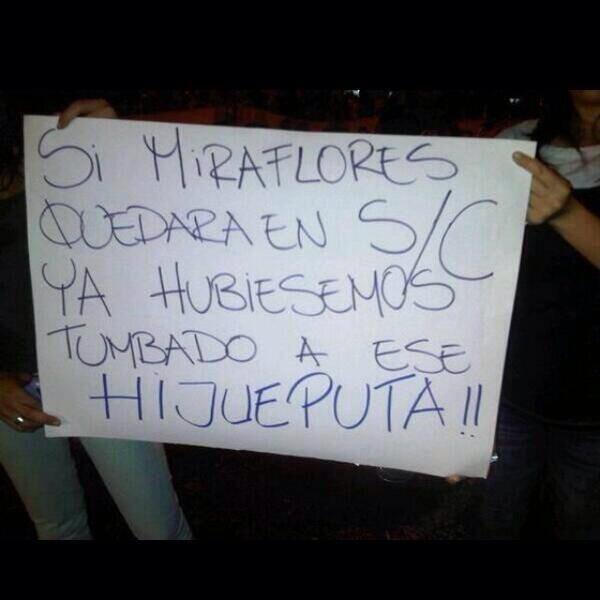 Si MiRAFLORES
QUEDARA EN S/C
YA HUBIESEMOS
TUMBADO A ESE
HIJUEPUTA!!